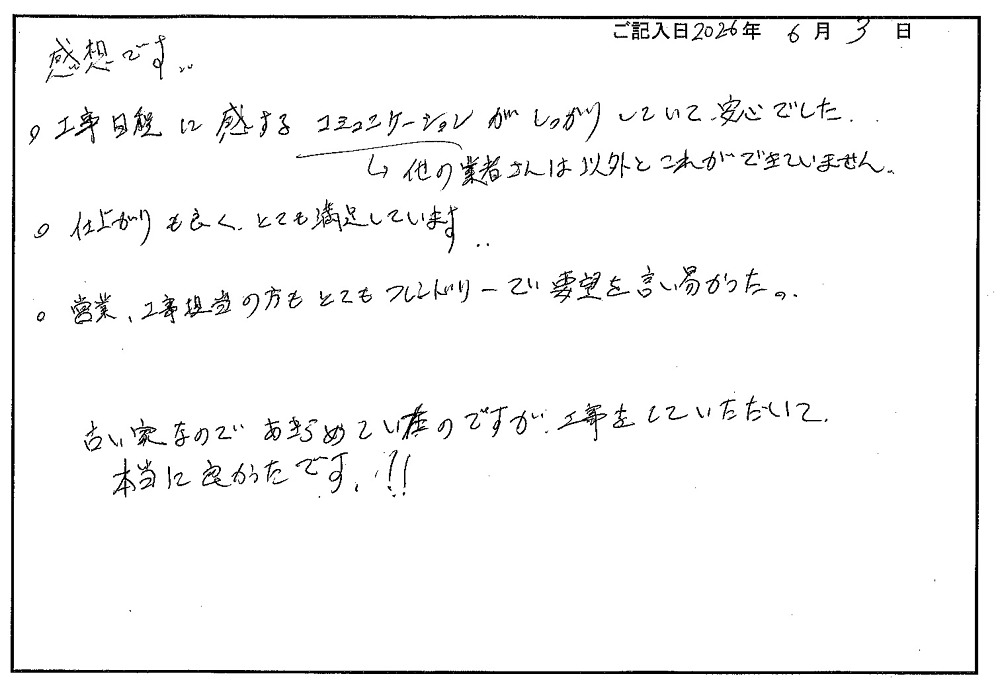 ご記入日2026年 6月 3日
感想です..
○ 工事日程に感するコミュニケーションがしっかりしていて、安心でした..
↳ 他の業者さんは以外とこれができていません。
○ 仕上がりも良く、とても満足しています..
○ 営業、工事担当の方もとてもフレンドリーでい要望を言い易かった。.
古い家なのであきらめていたのですが、工事をしていただいて、
本当に良かったです。!!